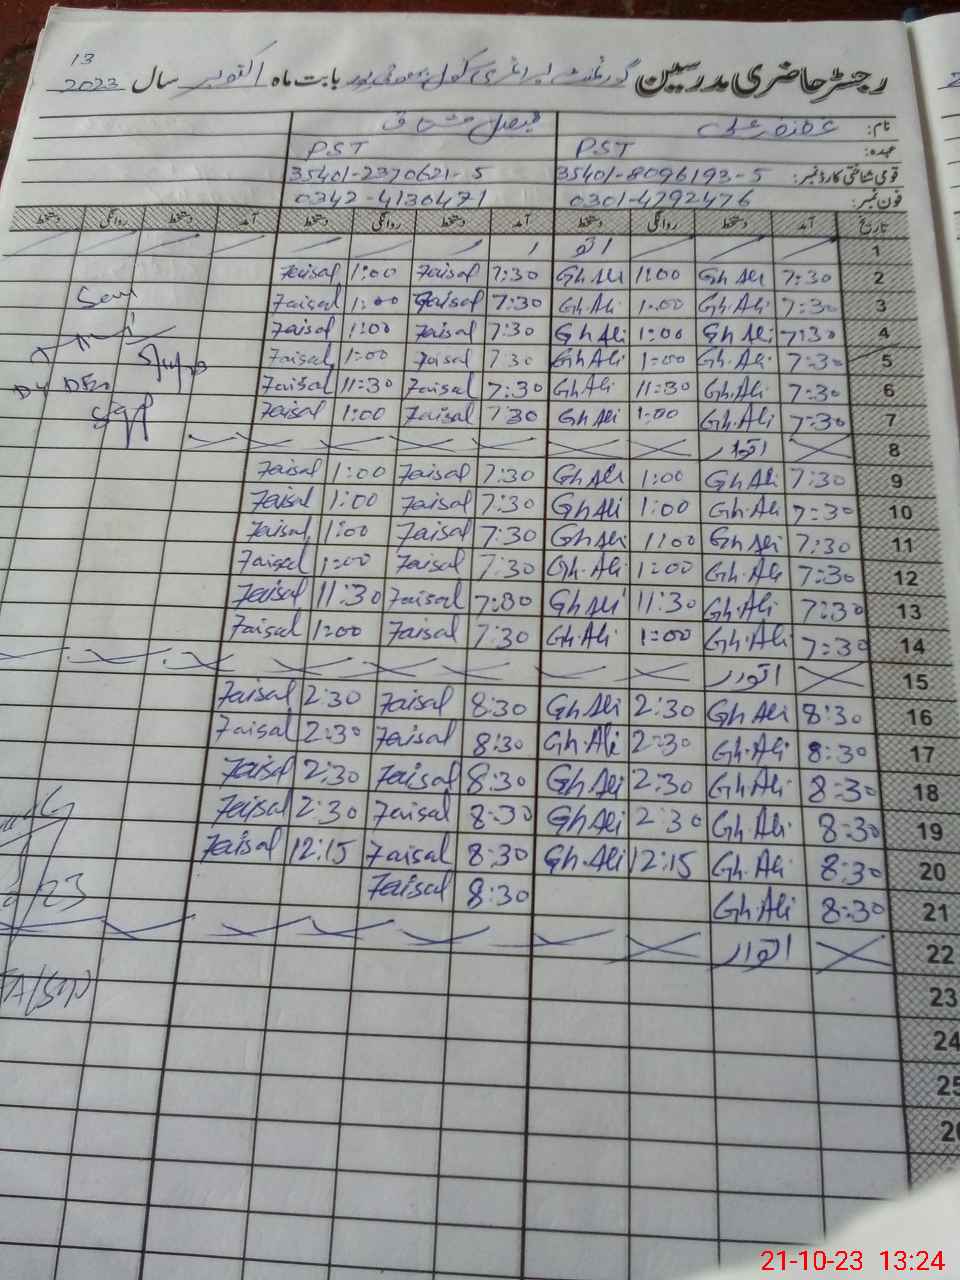 13
رجسٹر حاضری مدرسین گورنمنٹ پرائمری سکول بابت ماہ اکتوبر سال 2023
نام: غضنفر علی فیصل مشتاق
عہدہ: PST PST
قومی شناختی کارڈ نمبر: 35401-8096193-5 35401-2370621-5
فون نمبر: 0301-4792476 0342-4130471
تاریخ آمد دستخط روانگی دستخط آمد دستخط روانگی دستخط آمد دستخط روانگی دستخط
1 اتو ا
2 7:30 Gh Ali 1:00 Gh Ali 7:30 Faisal 1:00 Faisal
3 7:30 Gh.Ali 1:00 Gh.Ali 7:30 Faisal 1:00 Faisal
4 7:30 Gh Ali 1:00 Gh Ali 7:30 Faisal 1:00 Faisal
5 7:30 Gh.Ali 1:00 Gh Ali 7:30 Faisal 1:00 Faisal
6 7:30 Gh.Ali 11:30 Gh.Ali 7:30 Faisal 11:30 Faisal
7 7:30 Gh.Ali 1:00 Gh Ali 7:30 Faisal 1:00 Faisal
8 اتوار
9 7:30 Gh Ali 1:00 Gh Ali 7:30 Faisal 1:00 Faisal
10 7:30 Gh.Ali 1:00 Gh Ali 7:30 Faisal 1:00 Faisal
11 7:30 Gh Ali 1:00 Gh Ali 7:30 Faisal 1:00 Faisal
12 7:30 Gh.Ali 1:00 Gh.Ali 7:30 Faisal 1:00 Faisal
13 7:30 Gh.Ali 11:30 Gh Ali 7:30 Faisal 11:30 Faisal
14 7:30 Gh.Ali 1:00 Gh.Ali 7:30 Faisal 1:00 Faisal
15 اتوار
16 8:30 Gh Ali 2:30 Gh Ali 8:30 Faisal 2:30 Faisal
17 8:30 Gh.Ali 2:30 Gh.Ali 8:30 Faisal 2:30 Faisal
18 8:30 Gh Ali 2:30 Gh Ali 8:30 Faisal 2:30 Faisal
19 8:30 Gh.Ali 2:30 Gh Ali 8:30 Faisal 2:30 Faisal
20 8:30 Gh.Ali 12:15 Gh.Ali 8:30 Faisal 12:15 Faisal
21 8:30 Gh.Ali 8:30 Faisal
22 اتوار
23
24
25
26
21-10-23 13:24